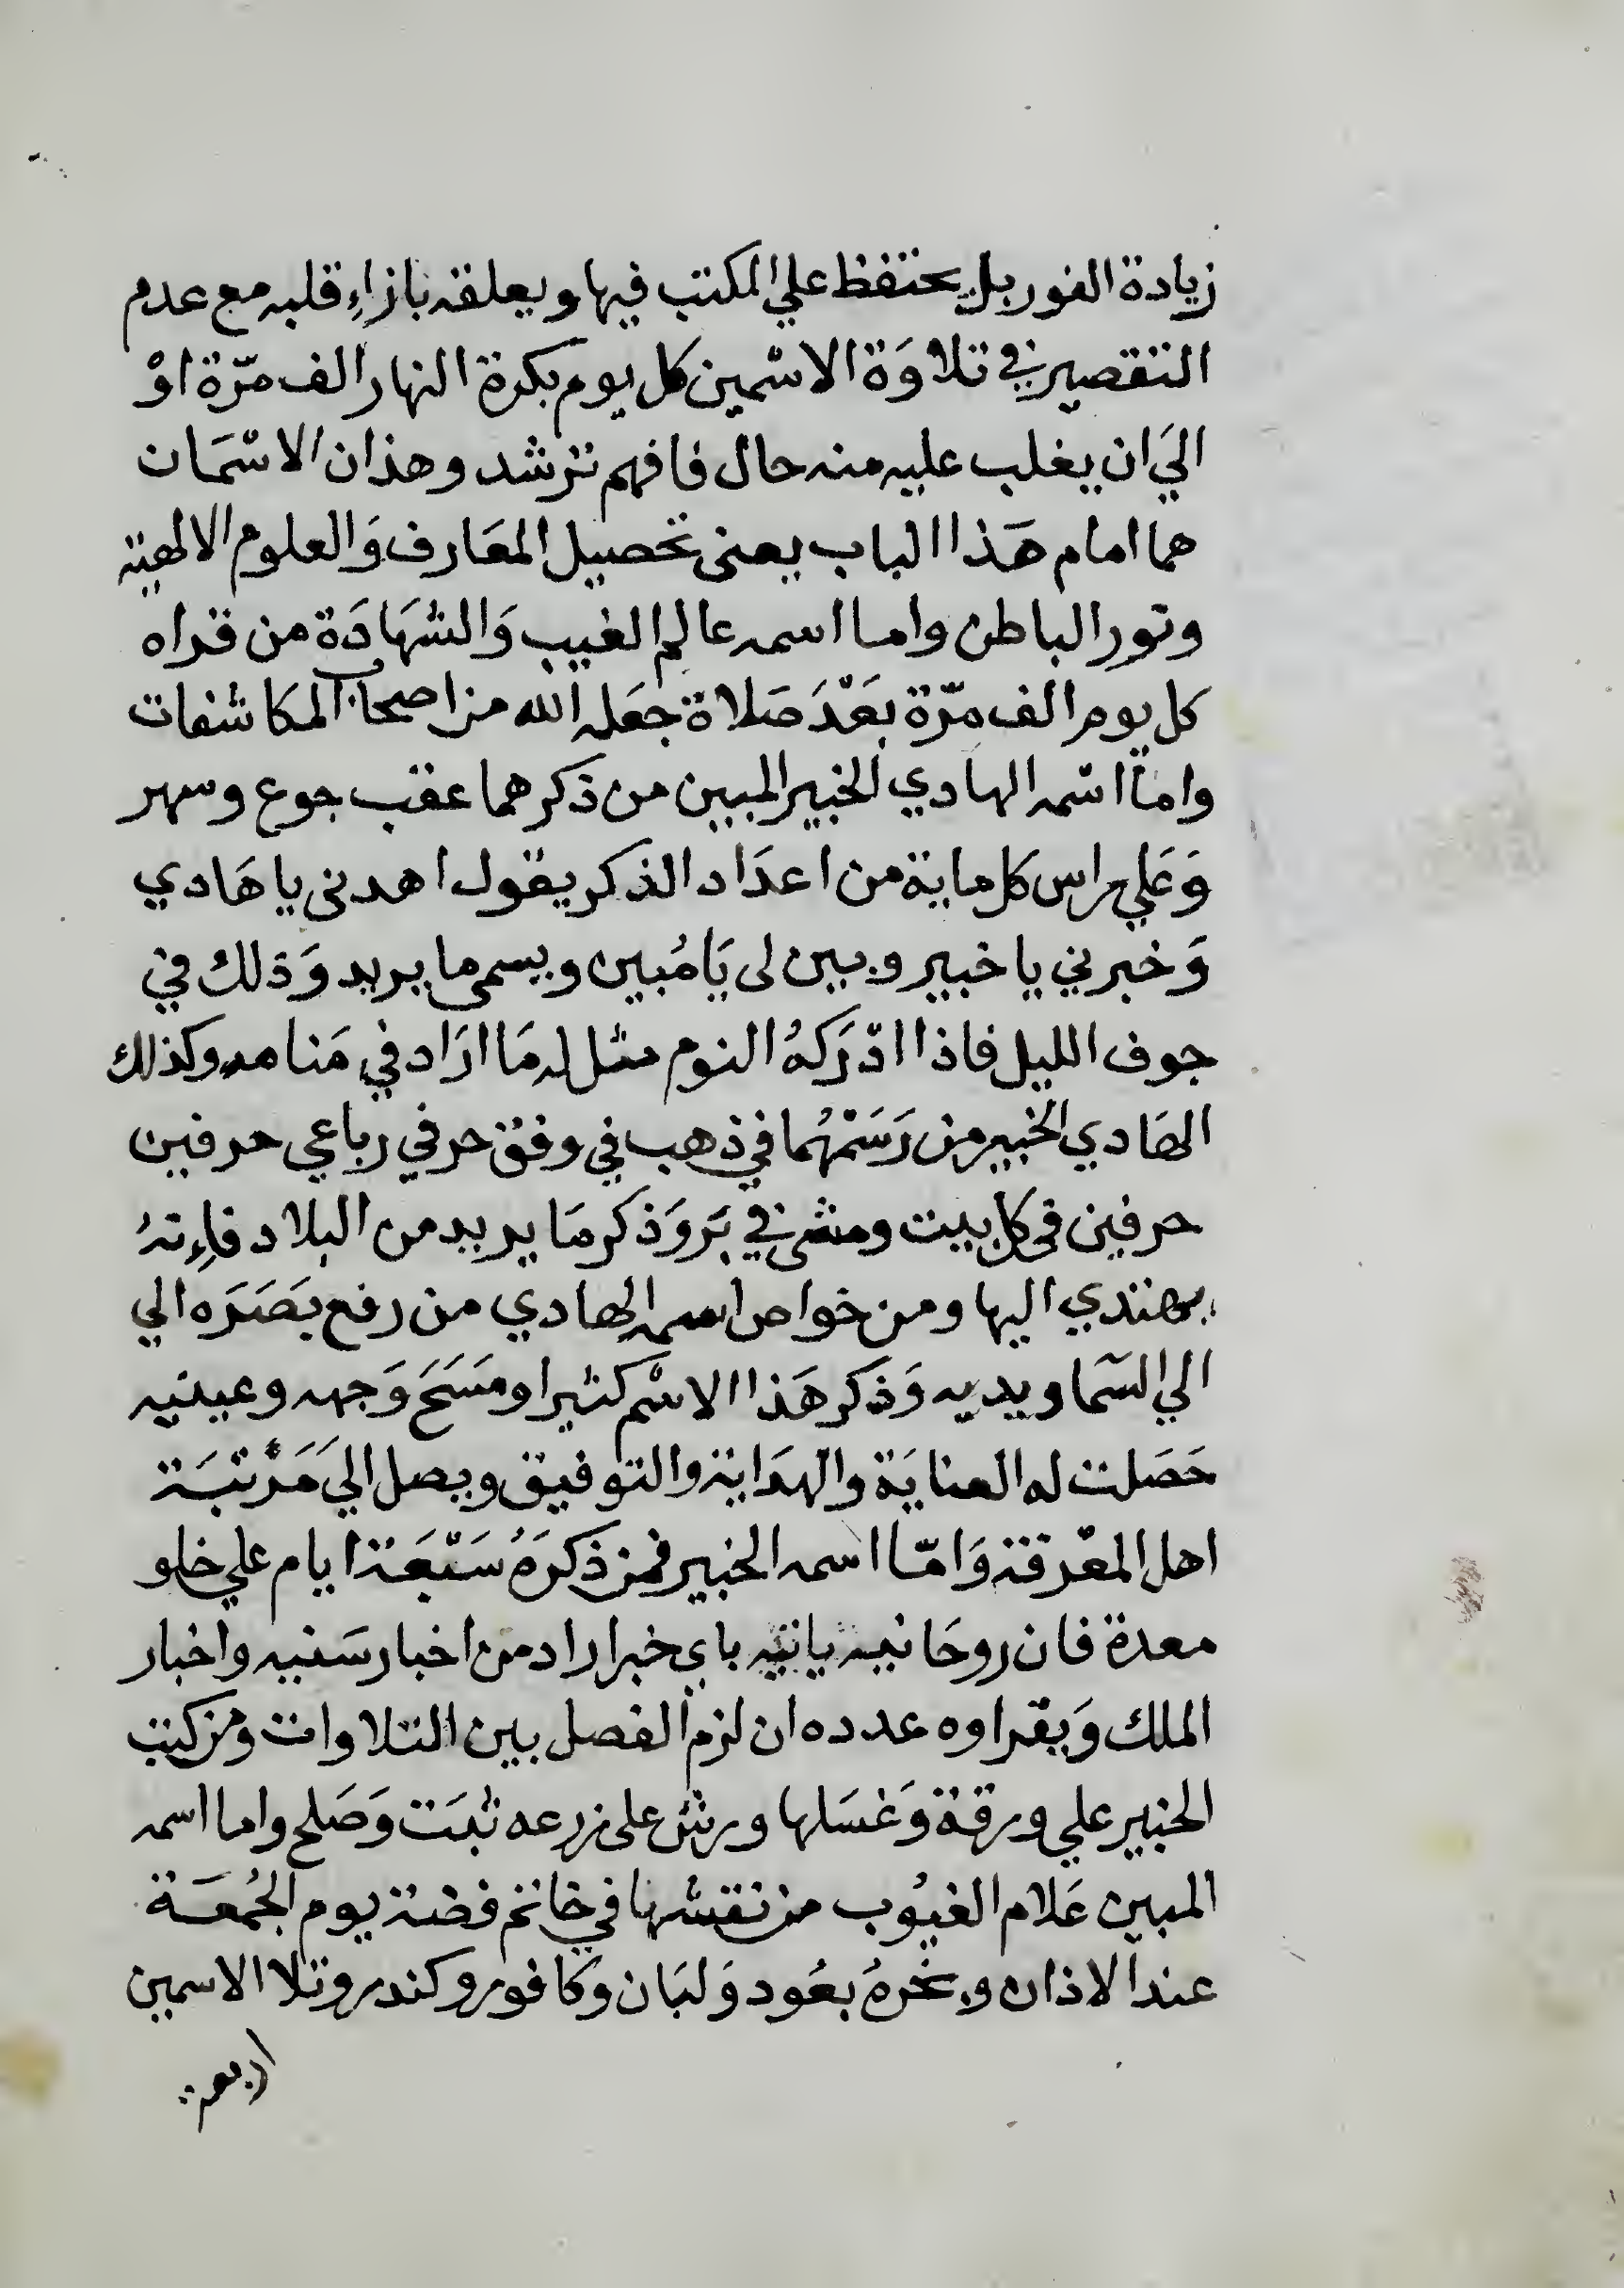 زيادة الفور بل يحتفظ علي المكتب فيها ويعلقه بازاءِ قلبه مع عدم
التقصير في تلاوَة الاسْمين كل يوم بكرة النهار الف مرّة اوْ
اليَ ان يغلب عليه منه حال فافهم ترشد وهذان الاسْمَان
هما امام هَذا الباب يعنى تحصيل المعَارف وَالعلوم الالهية
ونور الباطن واما اسمه عالم الغيب وَالشهَادَة من قراه
كل يوم الف مرّة بَعْدَ صَلاة جعَله الله من اصحاب المكاشفات
وامّا اسْمه الهادي الخبير المبين من ذكرهما عقب جوع وسهر
وَعَلي راس كل ماية من اعدَاد الذكر يقول اهدنى يا هَادي
وَخبرني يا خبير وبين لى يَا مُبين ويسمى ما يريد وَذلك في
جوف الليل فاذا ادْرَكهُ النوم مثل له مَا ارَاد في مَنامه وكذلك
الهَادي الخبير من رَسَمْهُما في ذهب في وفق حرفي رباعي حرفين
حرفين فى كل بيت ومشى في بَر وَذكر مَا يريد من البلاد فاِنهُ
يهتدي اليها ومن خواص اسمه الهادي من رفع بَصَرَه الي
الي السّما ويديه وَذكر هَذا الاسْم كثيرا ومَسَحَ وَجهه وعينيه
حَصَلت له العنايَة والهدَاية والتوفيق ويصل اليَ مَرْتبَة
اهل المعْرفة وَامّا اسمه الخبير فمن ذكرَهُ سَبْعَة ايام علي خلو
معدة فان روحَانيه ياتيه باي خبر اراد من اخبار سَنيه واخبار
الملك وَيقراوه عدده ان لزم الفصل بين التلاوات ومن كتب
الخبير علي ورقة وَغسَلها ورش على زرعه ثبَت وَصَلح واما اسمه
المبين عَلام الغيُوب من نقشها في خاتم فضة يوم الجُمعَة
عند الاذان وبخرهُ بعُود وَلبَان وكافور وكندر وتلا الاسمين